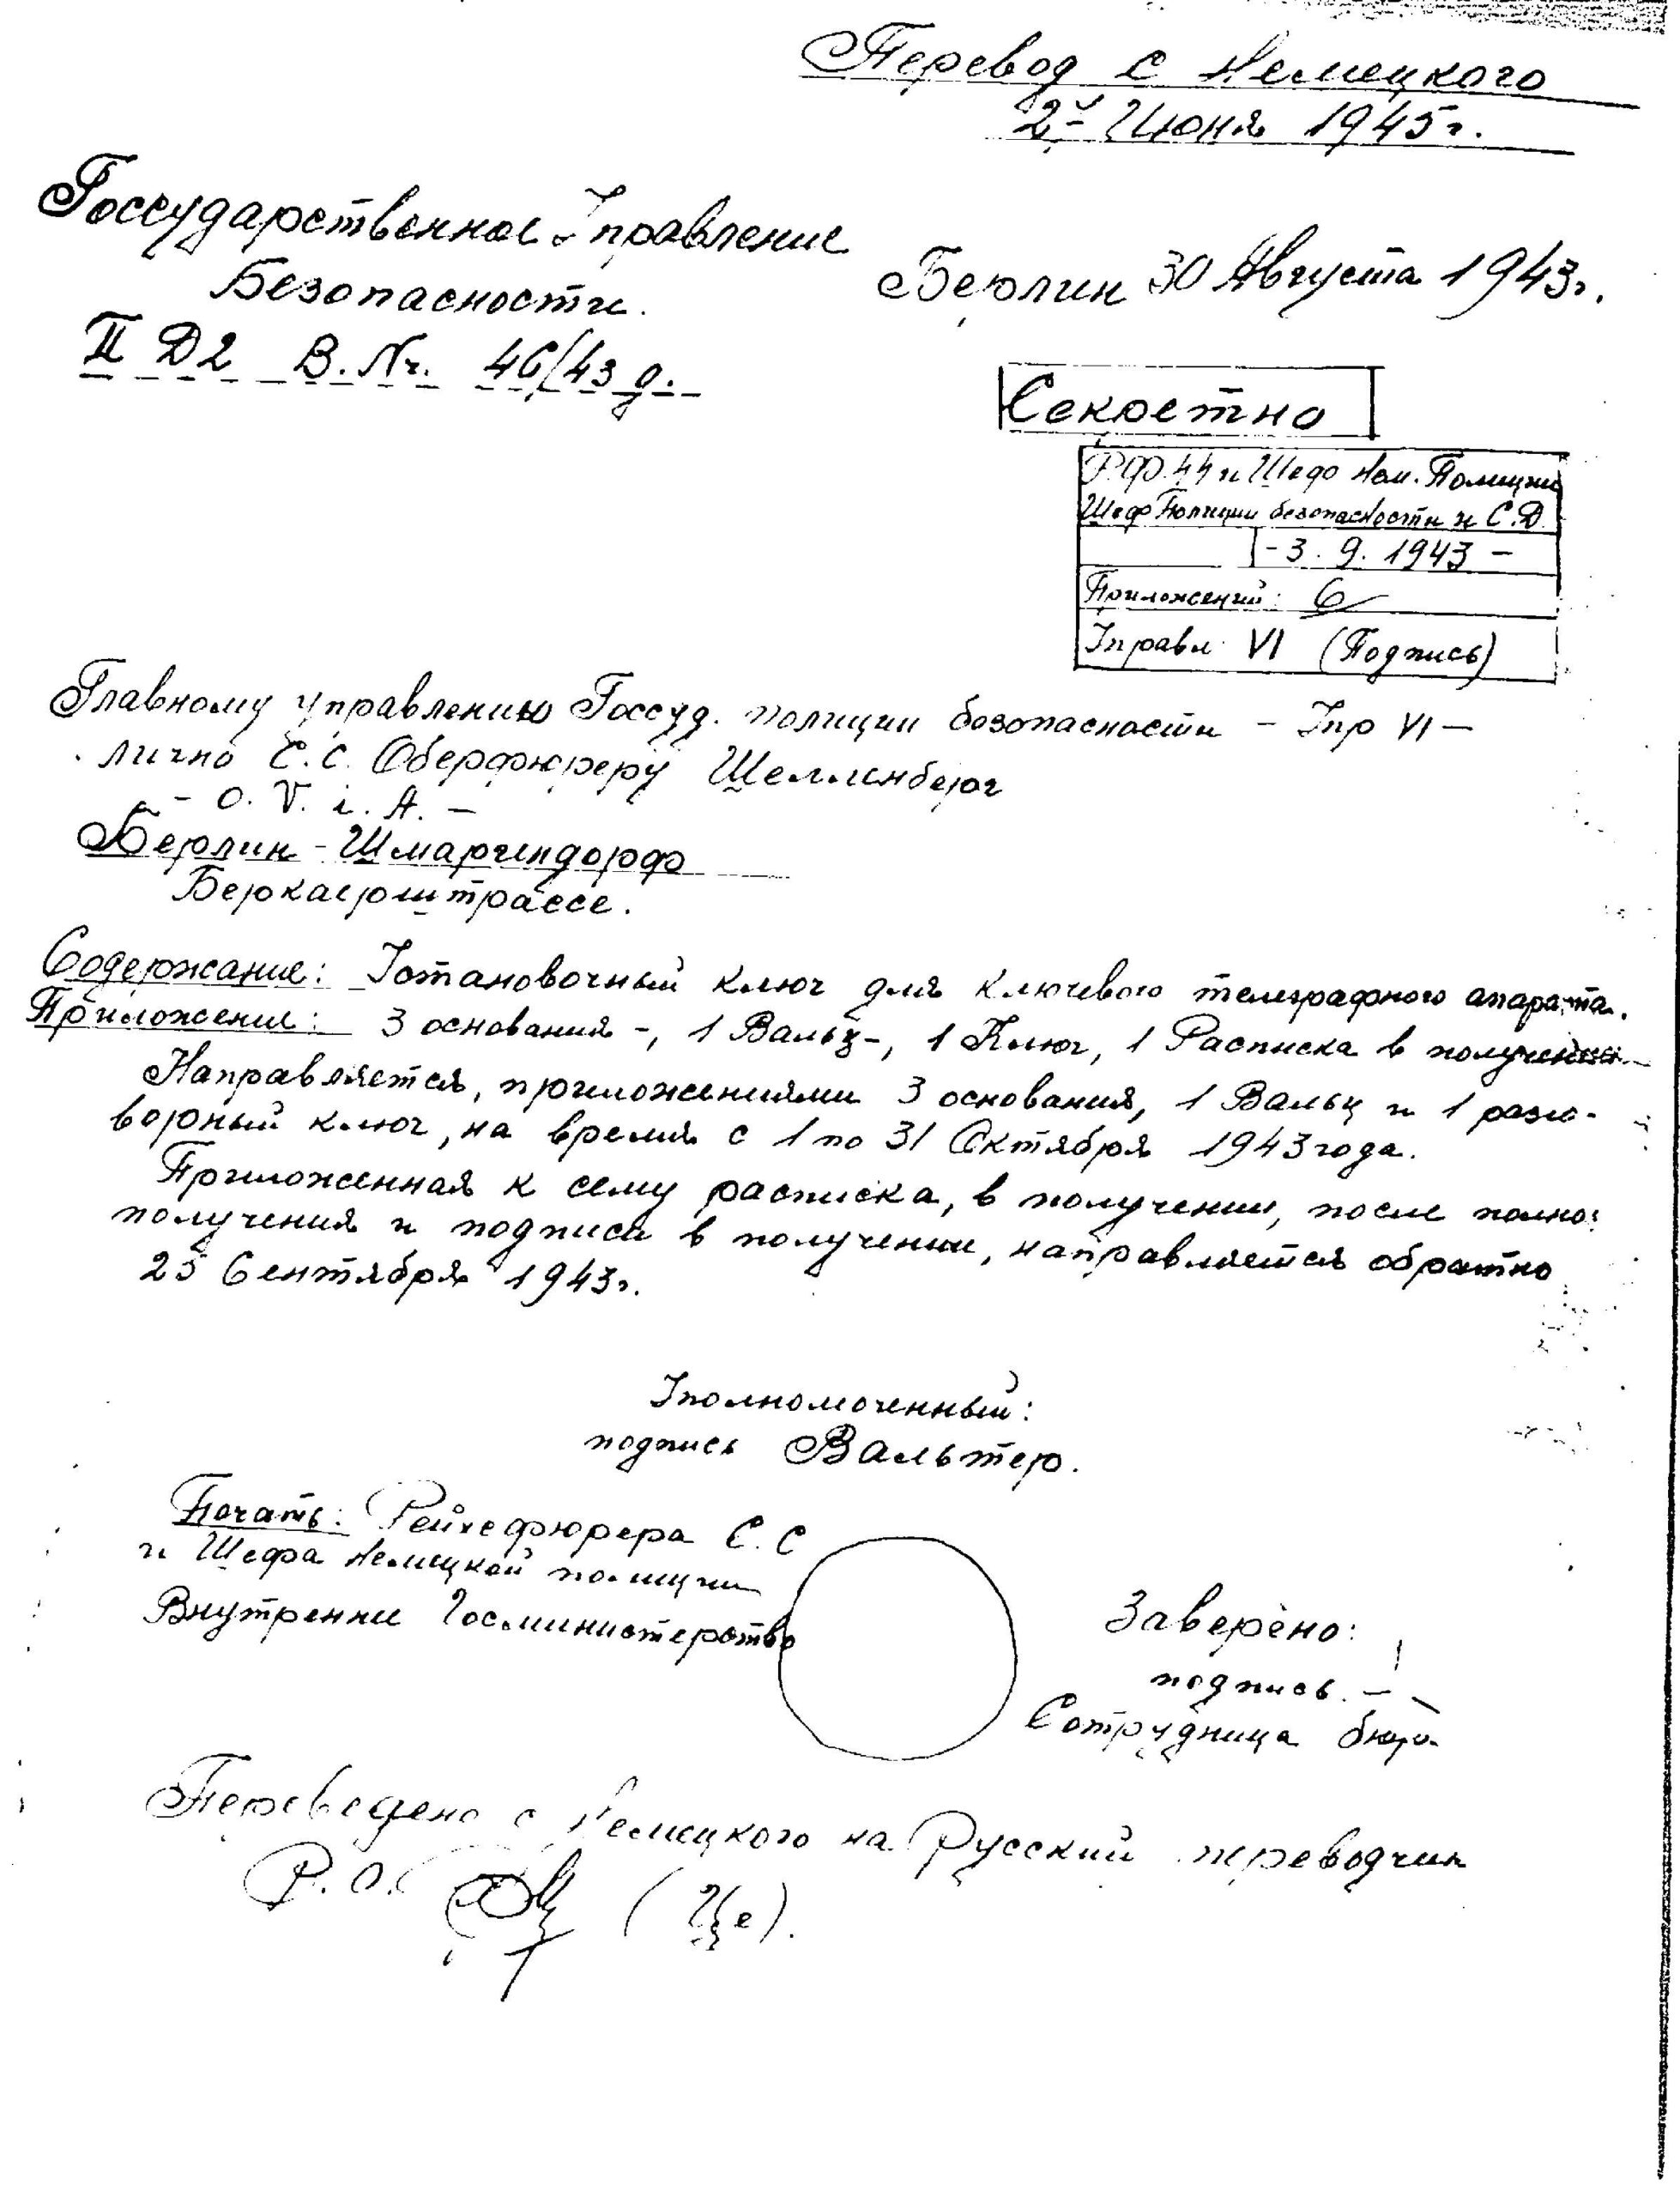 Перевод с Немецкого
2й Июня 1945г.
Госсударственное Управление
Безопасности.
Берлин 30 Августа 1943г.
II Д2 В. Nr. 46/43 g.
Секретно
Р.Ф.SS и Шеф Нем. Полиции
Шеф Полиции безопасности и С.Д.
- 3. 9. 1943 -
Приложений: 6
Управл. VI (Подпись)
Главному управлению Госсуд. полиции безопасности - Упр VI -
лично С.С. Оберфюреру Шелленберг
- o. V. i. A. -
Берлин - Шмаргендорф
Беркаерштрассе.
Содержание: Установочный ключ для ключевого телеграфного апарата.
Приложение: 3 основания -, 1 Вальц -, 1 Ключ, 1 Расписка в получении
Направляется, приложениями 3 основания, 1 Вальц и 1 разго-
ворный ключ, на время с 1 по 31 Октября 1943 года.
Приложенная к сему расписка, в получении, после полно:
получения и подписи в получении, направляется обратно
25 Сентября 1943г.
Уполномоченный:
подпись Вальтер.
Печать: Рейхсфюрера С.С
и Шефа Немецкой полиции
Внутренни Госминистерство
Заверено:
подпись. -
Сотрудница бюро.
Переведено с Немецкого на Русский переводчик
Р.О. (Це).